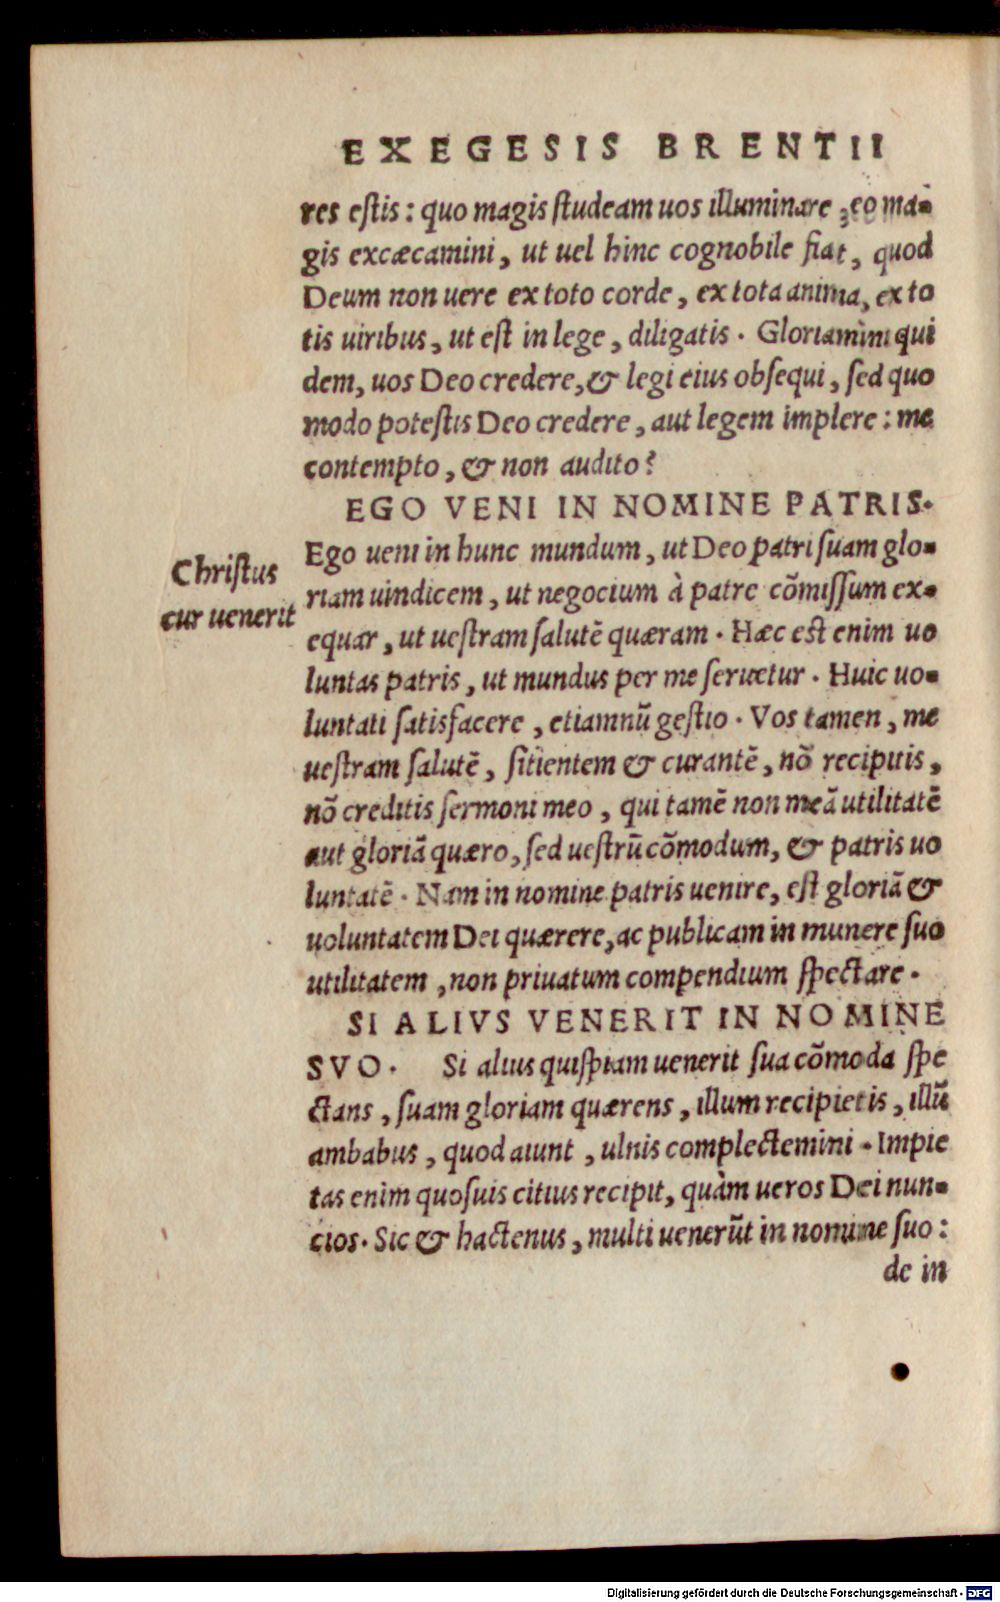 EXEGESIS BRENTII
res eſtis: quo magis ſtudeam uos illuminare, eo ma-
gis excæcamini, ut uel hinc cognobile fiat, quod
Deum non uere ex toto corde, ex tota anima, ex to
tis uiribus, ut eſt in lege, diligatis. Gloriamini qui
dem, uos Deo credere, & legi eius obſequi, ſed quo
modo poteſtis Deo credere, aut legem implere: me
contempto, & non audito?
EGO VENI IN NOMINE PATRIS.
Ego ueni in hunc mundum, ut Deo patri ſuam glo-
Chriſtus
cur uenerit
riam uindicem, ut negocium à patre cōmiſſum ex-
equar, ut ueſtram ſalutē quæram. Hæc eſt enim uo
luntas patris, ut mundus per me ſeruetur. Huic uo-
luntati ſatisfacere, etiamnū geſtio. Vos tamen, me
ueſtram ſalutē, ſitientem & curantē, nō recipitis,
nō creditis ſermoni meo, qui tamē non meā utilitatē
aut gloriā quæro, ſed ueſtrū cōmodum, & patris uo
luntatē. Nam in nomine patris uenire, eſt gloriā &
uoluntatem Dei quærere, ac publicam in munere ſuo
utilitatem, non priuatum compendium ſpectare.
SI ALIVS VENERIT IN NOMINE
SVO. Si alius quiſpiam uenerit ſua cōmoda ſpe
ctans, ſuam gloriam quærens, illum recipietis, illū
ambabus, quod aiunt, ulnis complectemini. Impie
tas enim quoſuis citius recipit, quàm ueros Dei nun-
cios. Sic & hactenus, multi uenerūt in nomine ſuo:
de in
Digitalisierung gefördert durch die Deutsche Forschungsgemeinschaft - DFG